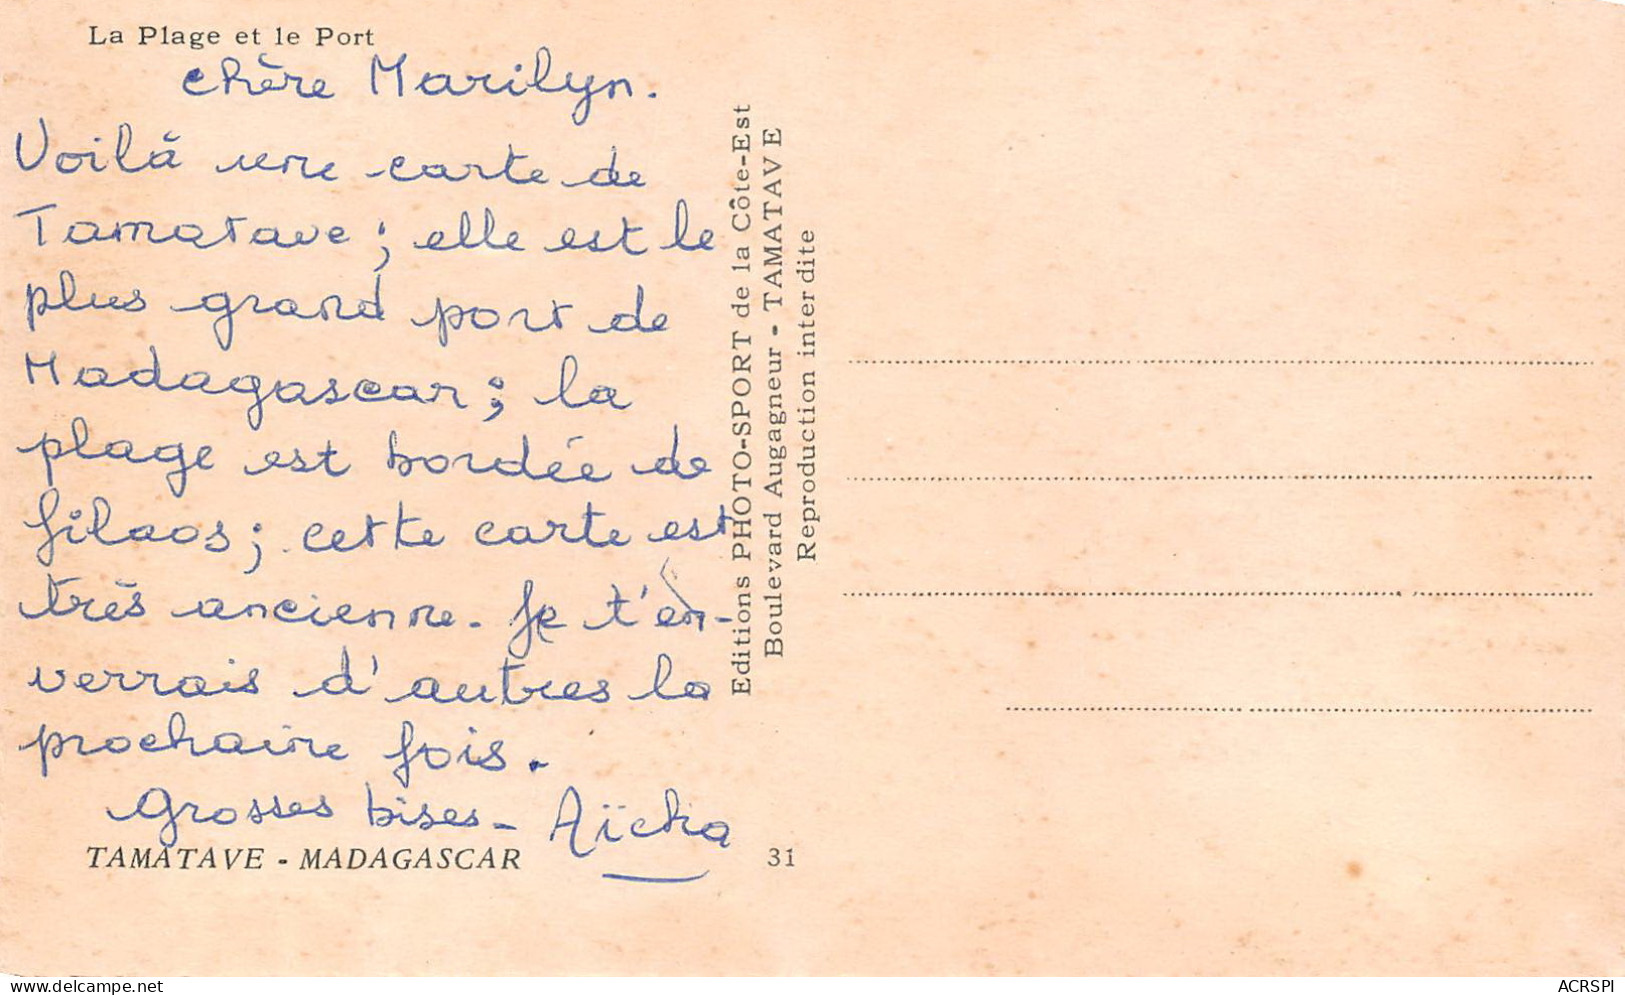 La Plage et le Port
chère Marilyn.
Voilà une carte de
Tamatave ; elle est le
plus grand port de
Madagascar ; la
plage est bordée de
filaos ; cette carte est
très ancienne. Je t'en-
verrais d'autres la
prochaine fois.
grosses bises - Aïcha
TAMATAVE - MADAGASCAR
Editions PHOTO-SPORT de la Côte-Est
Boulevard Augagneur - TAMATAVE
Reproduction interdite
31
delcampe.net
ACRSPI